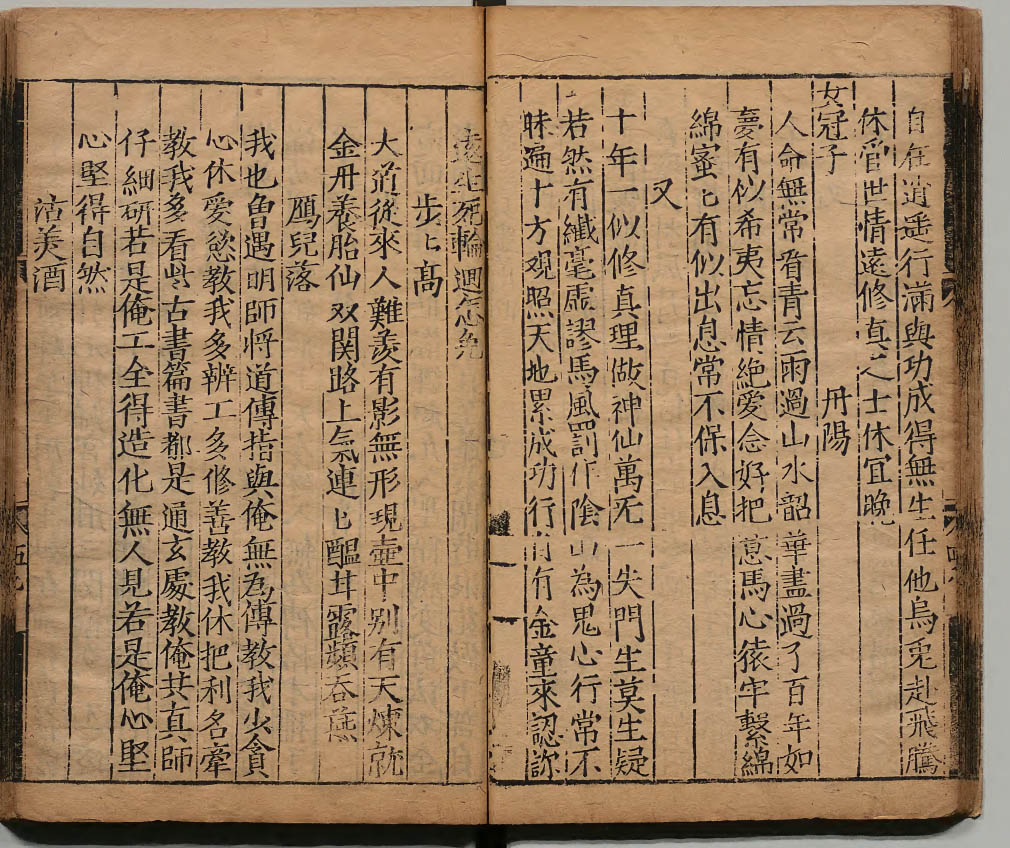 自在逍遥行滿與功成得無生任他烏兎赴飛騰
休管世情遠修真之士休宜晩
女冠子 丹陽
人命無常看青云雨過山水韶華盡過了百年如
夢有似希夷忘情絶愛念好把意馬心猿牢繫綿
綿蜜匕有似出息常不保入息
又
十年一似修真理做神仙萬无一失門生莫生疑
若然有纖毫虚謬馬風罰作陰山為鬼心行常不
昧遍十方观照天地累成功行自有金童來認你
生死輪廻怎免
步匕高
大道從來人難羡有影無形現壷中别有天煉就
金丹養胎仙双関路上氣連匕醖甘露頻吞燕
鴈兒落
我也曽遇明師将道傳指與俺無為傳教我少貪
心休愛慾教我多辨工多修善教我休把利名牽
教我多看些古書篇書都是通玄處教俺共真師
仔細研若是俺工全得造化無人見若是俺心堅
心堅得自然
沽美酒